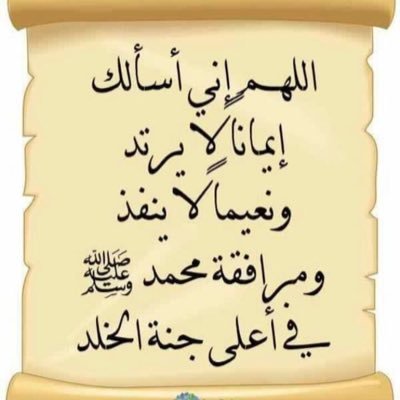 اللهم إني أسألك
إيماناً لا يرتد
ونعيماً لا ينفذ
ومرافقة محمد ﷺ
في أعلى جنة الخلد